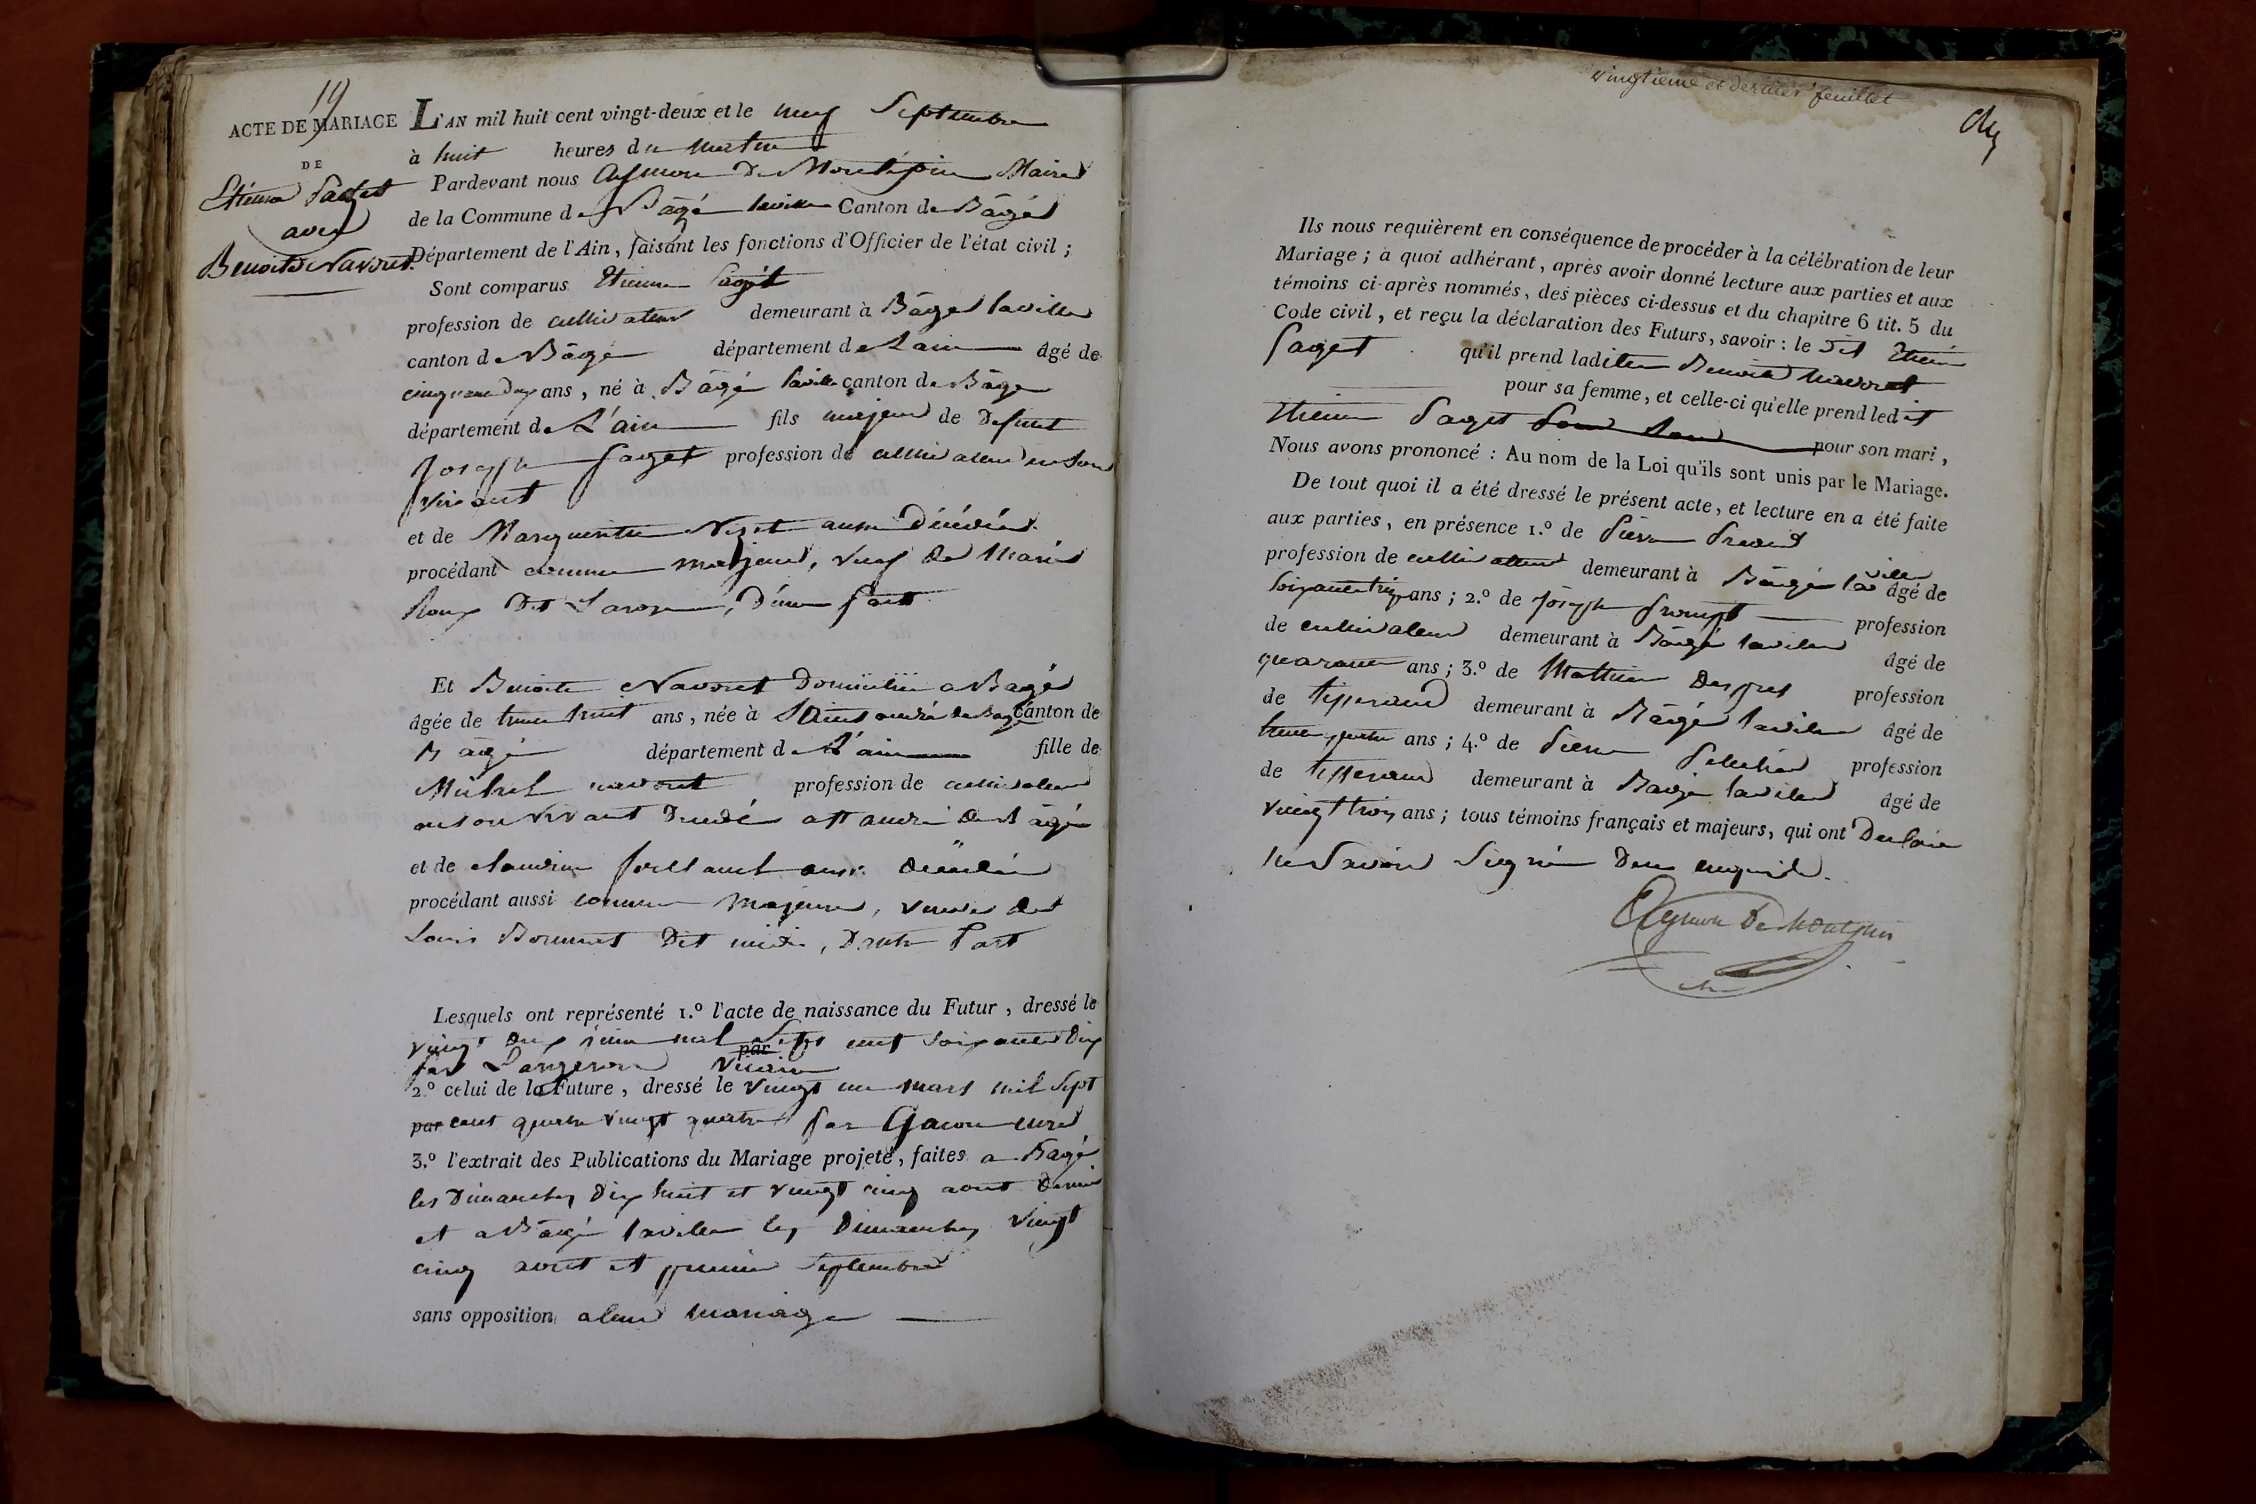 19
ACTE DE MARIAGE
DE
Etienne Paget
avec
Benoite Navoret.
L'AN mil huit cent vingt-deux et le neuf Septembre
à huit heures du matin
Pardevant nous Aymon De Montépin Maire
de la Commune de Bâgé laville Canton de Bâgé
Département de l'Ain, faisant les fonctions d'Officier de l'état civil ;
Sont comparus Etienne Paget
profession de cultivateur demeurant à Bâgé laville
canton de Bâgé département de Lain âgé de
cinquante deux ans, né à Bâgé laville canton de Bâgé
département de L'ain fils majeur de Defunt
Joseph Paget profession de cultivateur en son
vivant
et de Marguerite Nizet aussi Décédée
procédant comme majeur, veuf de Marie
Roux Dit Larose, D'une part
Et Benoite Navoret Domiciliée a Bagé
âgée de trente huit ans, née à Saint andré de Bagé canton de
Bâgé département de L'ain fille de
Michel navoret profession de cultivateur
en son vivant Décédé a St andré de Bâgé
et de claudine aussi Décédée
procédant aussi comme majeure, veuve de
Louis Bonnet Dit midi, D'autre Part
Lesquels ont représenté 1.º l'acte de naissance du Futur, dressé le
vingt deux juin mil Sept cent Soixante Dix
par Vicaire
2.º celui de la Future, dressé le vingt un mars mil Sept
par cent quatre vingt quatre par Gacon curé
3.º l'extrait des Publications du Mariage projeté, faites a Bagé
les Dimanches Dix huit et vingt cinq aout Dernier
et a Bâgé laville les Dimanches vingt
cinq aout et premier Septembre
sans opposition a leur mariage
vingtième et dernier feuillet
Ils nous requièrent en conséquence de procéder à la célébration de leur
Mariage ; à quoi adhérant, après avoir donné lecture aux parties et aux
témoins ci-après nommés, des pièces ci-dessus et du chapitre 6 tit. 5 du
Code civil, et reçu la déclaration des Futurs, savoir : le dit Etienne
Paget qu'il prend ladite Benoite Navoret
pour sa femme, et celle-ci qu'elle prend ledit
Etienne Paget pour son mari,
Nous avons prononcé : Au nom de la Loi qu'ils sont unis par le Mariage.
De tout quoi il a été dressé le présent acte, et lecture en a été faite
aux parties, en présence 1.º de Pierre
profession de cultivateur demeurant à Bâgé la ville âgé de
Soixante trois ans ; 2.º de Joseph profession
de cultivateur demeurant à Bâgé laville âgé de
quarante ans ; 3.º de Mathieu Desprès profession
de tisserand demeurant à Bâgé laville âgé de
trente quatre ans ; 4.º de Pierre profession
de tisserand demeurant à Bâgé laville âgé de
vingt trois ans ; tous témoins français et majeurs, qui ont Declaré
ne Savoir Signer De ce enquis.
Aymon De Montépin